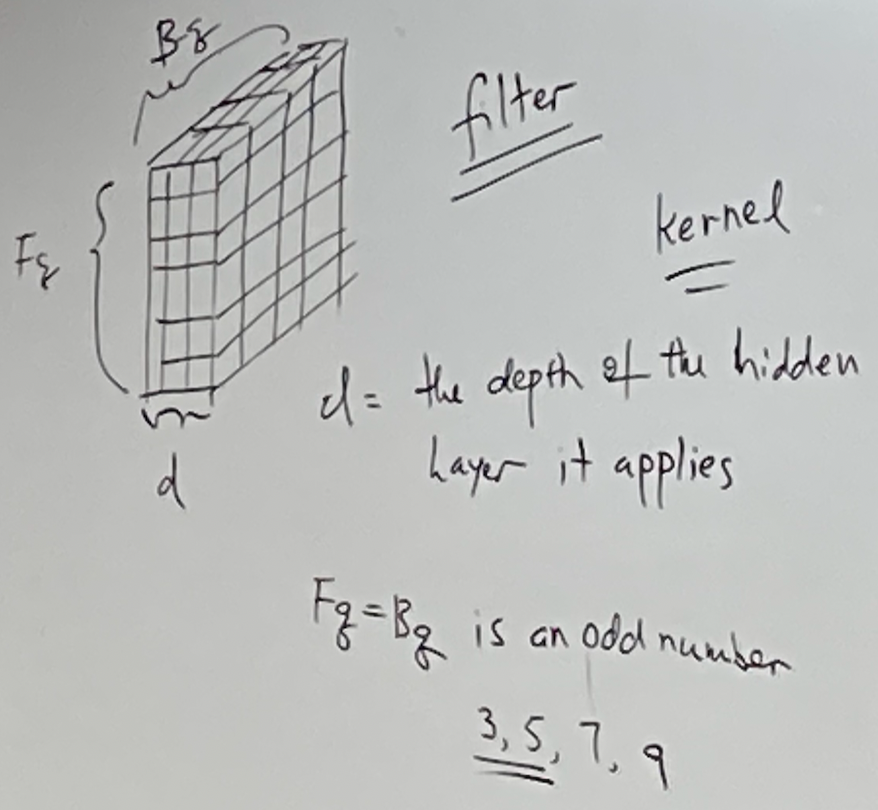 Bq
filter
kernel
Fq
d = the depth of the hidden
layer it applies
d
Fq = Bq is an odd number
3, 5, 7, 9